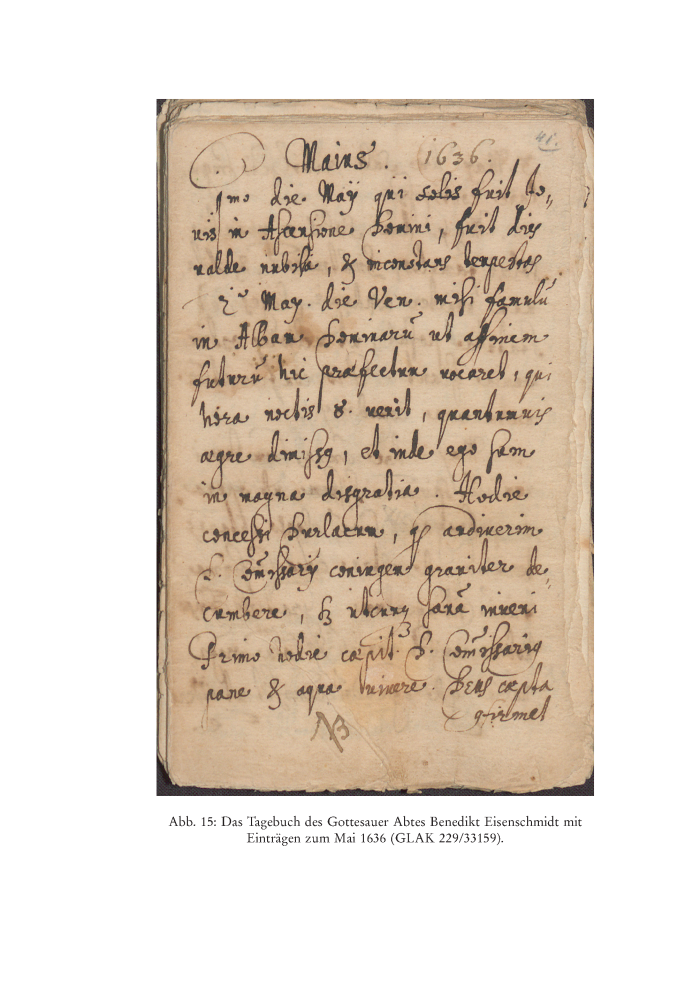 41.
Maius. 1636.
1mo die Maÿ qui solis fuit Jo„
uis in Ascensione Domini, fuit dies
valde nubila, & inconstans tempestas
2o May. die Ven. misi famulū
in Albam Dominarū ut affinem
futurū hic præfectum vocaret, qui
hora noctis 8. venit, quantumuis
ægre dimissq, et inde ego sum
in magna disgratia. Hodie
concessi Durlacum, qꝫ audiverim
D. Com̄issarÿ coniugem graviter de„
cumbere, sꝫ utcunqꝫ sanā inveni
Primo hodie cœpit D. Com̄issariq
pane & aqua vivere. Deus cœpta
9firmet
NB
Abb. 15: Das Tagebuch des Gottesauer Abtes Benedikt Eisenschmidt mit
Einträgen zum Mai 1636 (GLAK 229/33159).